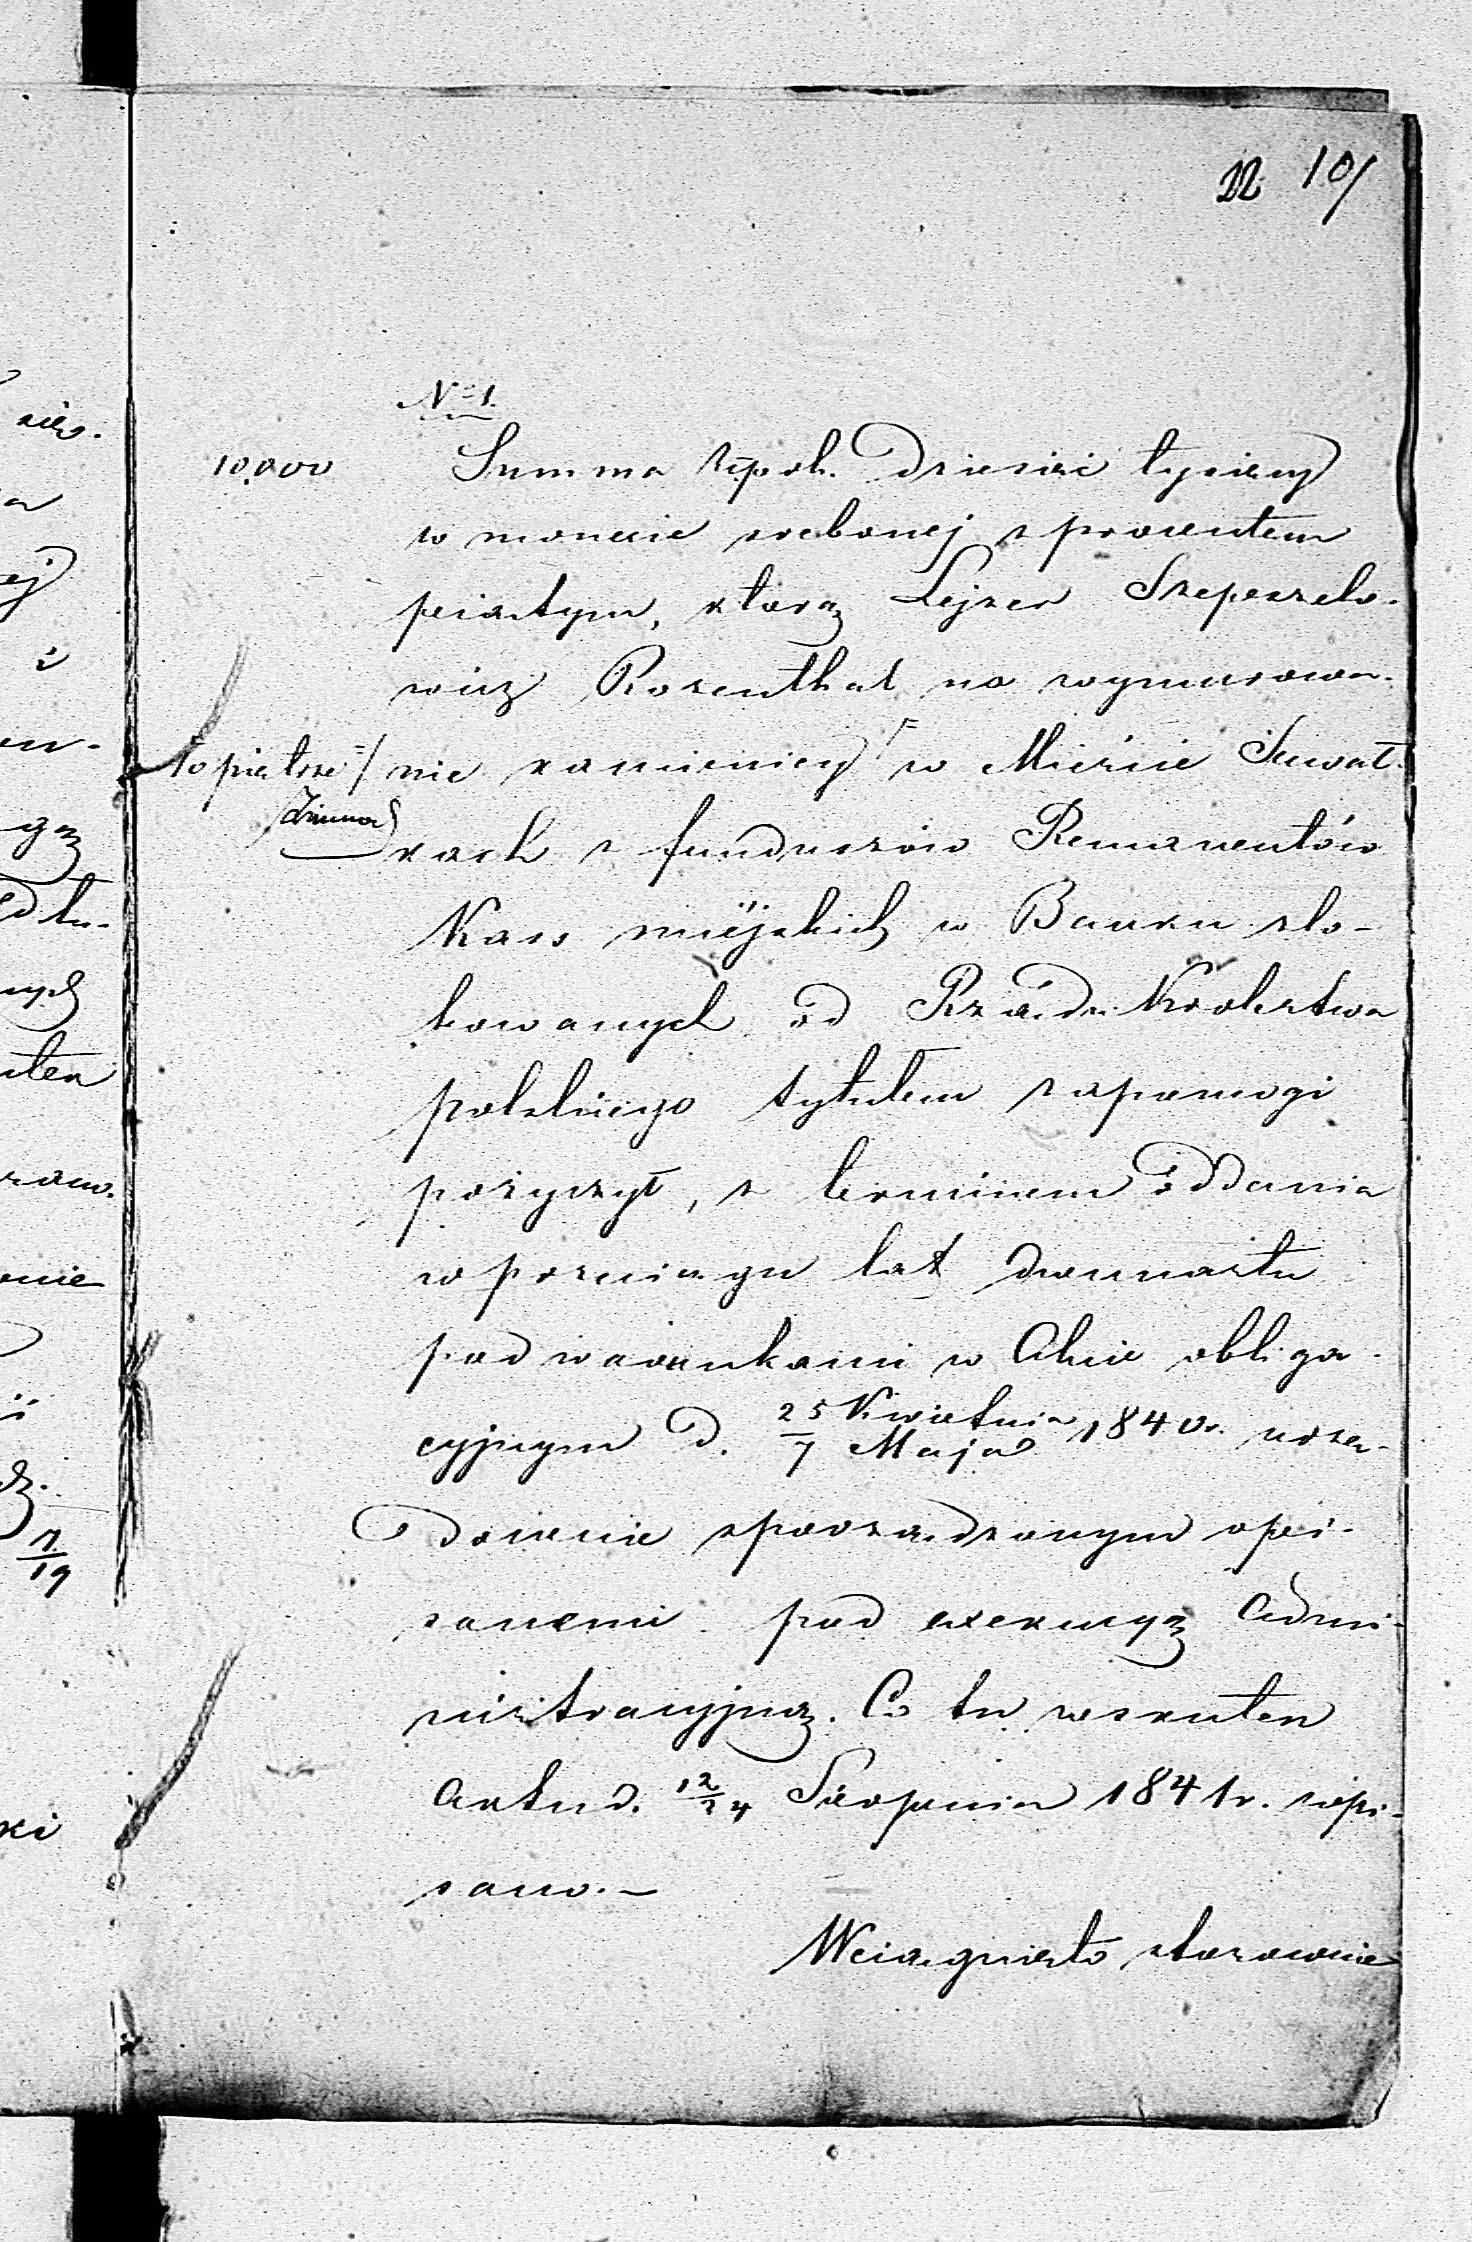 22 101
No 1.
10,000 Summa złpol. Dziesięć tysięcy
w monecie srebrnej z procentem
piątym, którą Lejzer Szepszelo-
wicz Rosenthal na wymurowa-
o piętrze =/ nie kamienicy ⌈= w Mieście Suwał-
kach z funduszów Remanentów
Kass miejskich w Banku zlo-
kowanych od Rządu Krolestwa
polskiego tytułem zapomogi
pożyczył, z terminem oddania
w przeciągu lat dwunastu
pod warunkami w Akcie obliga-
cyjnym d. 25 Kwietnia / 7 Maja 1840 r. urzę-
downie sporządzonym opi-
sanemi pod exekucyą Admi-
nistracyjną. Co tu w skutek
Aktu d. 12/24 Sierpnia 1841 r. wpi-
sano.—
Wciągnięto stosownie